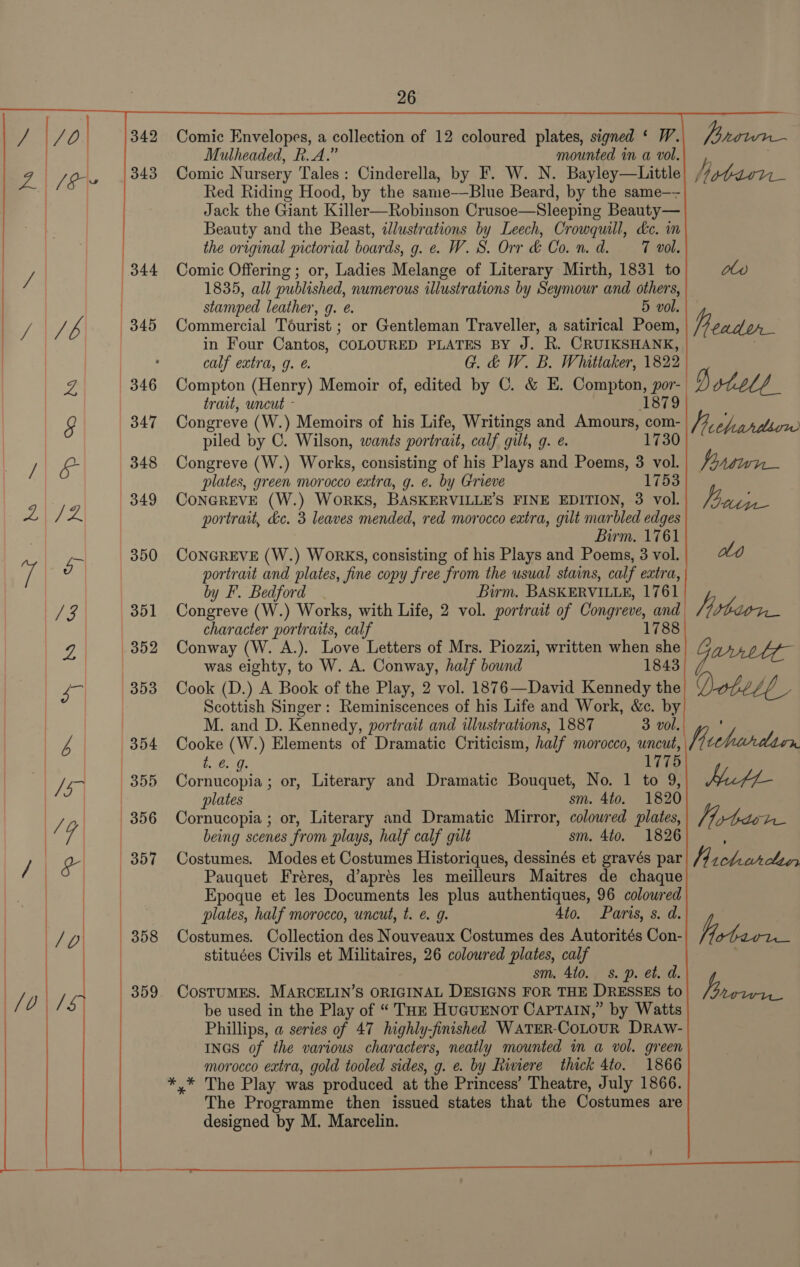 26
1 10 342 Comic Envelopes, a collection of 12 coloured plates, signed ‘ W. Brown
Mulheaded, R.A.” mounted in a vol.
2 18 343 Comic Nursery Tales: Cinderella, by F. W. N. Bayley—Little Hobson
Red Riding Hood, by the same—Blue Beard, by the same—
Jack the Giant Killer—Robinson Crusoe—Sleeping Beauty—
Beauty and the Beast, illustrations by Leech, Crowquill, &c. in
the original pictorial boards, g. e. W. S. Orr & Co. n. d. 7 vol.
1 344 Comic Offering; or, Ladies Melange of Literary Mirth, 1831 to do
1835, all published, numerous illustrations by Seymour and others,
stamped leather, g. e. 5 vol.
1 16 345 Commercial Tourist; or Gentleman Traveller, a satirical Poem, Reader
in Four Cantos, COLOURED PLATES BY J. R. CRUIKSHANK,
calf extra, g. e. G. & W. B. Whittaker, 1822
2 346 Compton (Henry) Memoir of, edited by C. & E. Compton, por- Dobell
trait, uncut 1879
8 347 Congreve (W.) Memoirs of his Life, Writings and Amours, com- Richardson
piled by C. Wilson, wants portrait, calf gilt, g. e. 1730
1 8 348 Congreve (W.) Works, consisting of his Plays and Poems, 3 vol. Brown
plates, green morocco extra, g. e. by Grieve 1753
2 12 349 CONGREVE (W.) WORKS, BASKERVILLE’S FINE EDITION, 3 vol. Bain
portrait, &c. 3 leaves mended, red morocco extra, gilt marbled edges
Birm. 1761
7 5 350 CONGREVE (W.) WORKS, consisting of his Plays and Poems, 3 vol. do
portrait and plates, fine copy free from the usual stains, calf extra,
by F. Bedford Birm. BASKERVILLE, 1761
13 351 Congreve (W.) Works, with Life, 2 vol. portrait of Congreve, and Hobson
character portraits, calf 1788
2 352 Conway (W. A.). Love Letters of Mrs. Piozzi, written when she Garrett
was eighty, to W. A. Conway, half bound 1843
5 353 Cook (D.) A Book of the Play, 2 vol. 1876—David Kennedy the Dobell
Scottish Singer: Reminiscences of his Life and Work, &c. by
M. and D. Kennedy, portrait and illustrations, 1887 3 vol.
6 354 Cooke (W.) Elements of Dramatic Criticism, half morocco, uncut, Richardson
t. e. g. 1775
15 355 Cornucopia; or, Literary and Dramatic Bouquet, No. 1 to 9, Hutt
plates sm. 4to. 1820
19 356 Cornucopia; or, Literary and Dramatic Mirror, coloured plates, Hobson
being scenes from plays, half calf gilt sm. 4to. 1826
1 8 357 Costumes. Modes et Costumes Historiques, dessinés et gravés par Richardson
Pauquet Fréres, d’aprés les meilleurs Maitres de chaque
Epoque et les Documents les plus authentiques, 96 coloured
plates, half morocco, uncut, t. e. g. 4to. Paris, s. d.
10 358 Costumes. Collection des Nouveaux Costumes des Autorités Con- Hobson
stituées Civils et Militaires, 26 coloured plates, calf
sm. 4to. s. p. et. d.
10 15 359 COSTUMES. MARCELIN’S ORIGINAL DESIGNS FOR THE DRESSES to Brown
be used in the Play of “THE HUGUENOT CAPTAIN,” by Watts
Phillips, a series of 47 highly-finished WATER-COLOUR DRAW-
INGS of the various characters, neatly mounted in a vol. green
morocco extra, gold tooled sides, g. e. by Riviere thick 4to. 1866
*⁎* The Play was produced at the Princess’ Theatre, July 1866.
The Programme then issued states that the Costumes are
designed by M. Marcelin.